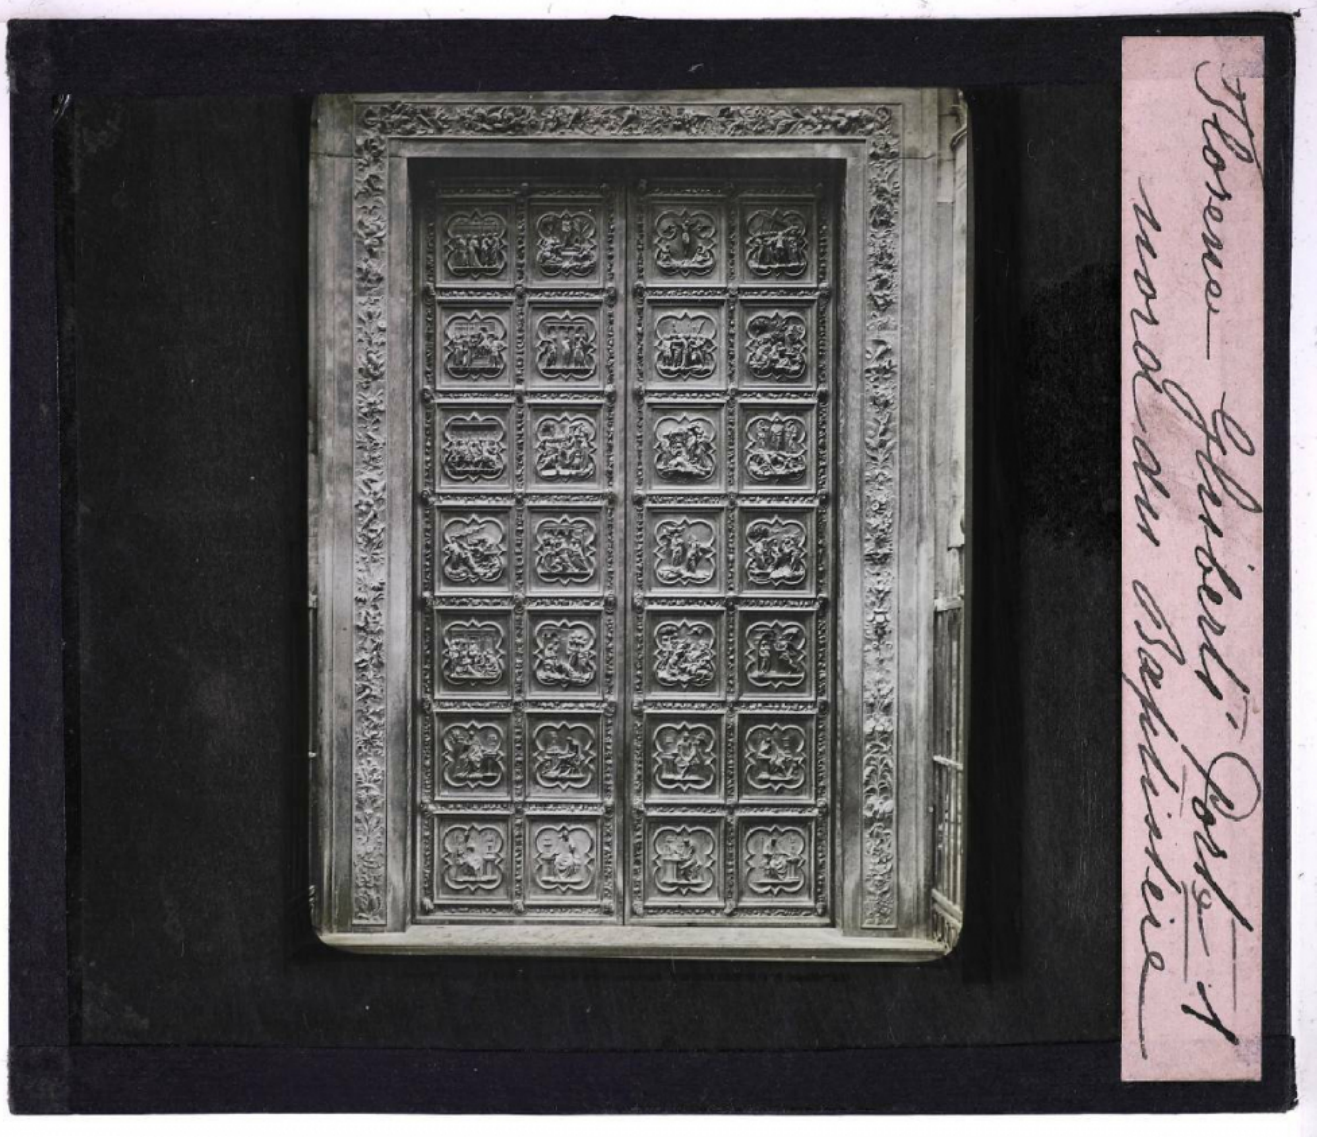 Florence Ghiberti Porte 1
nord du Baptistère